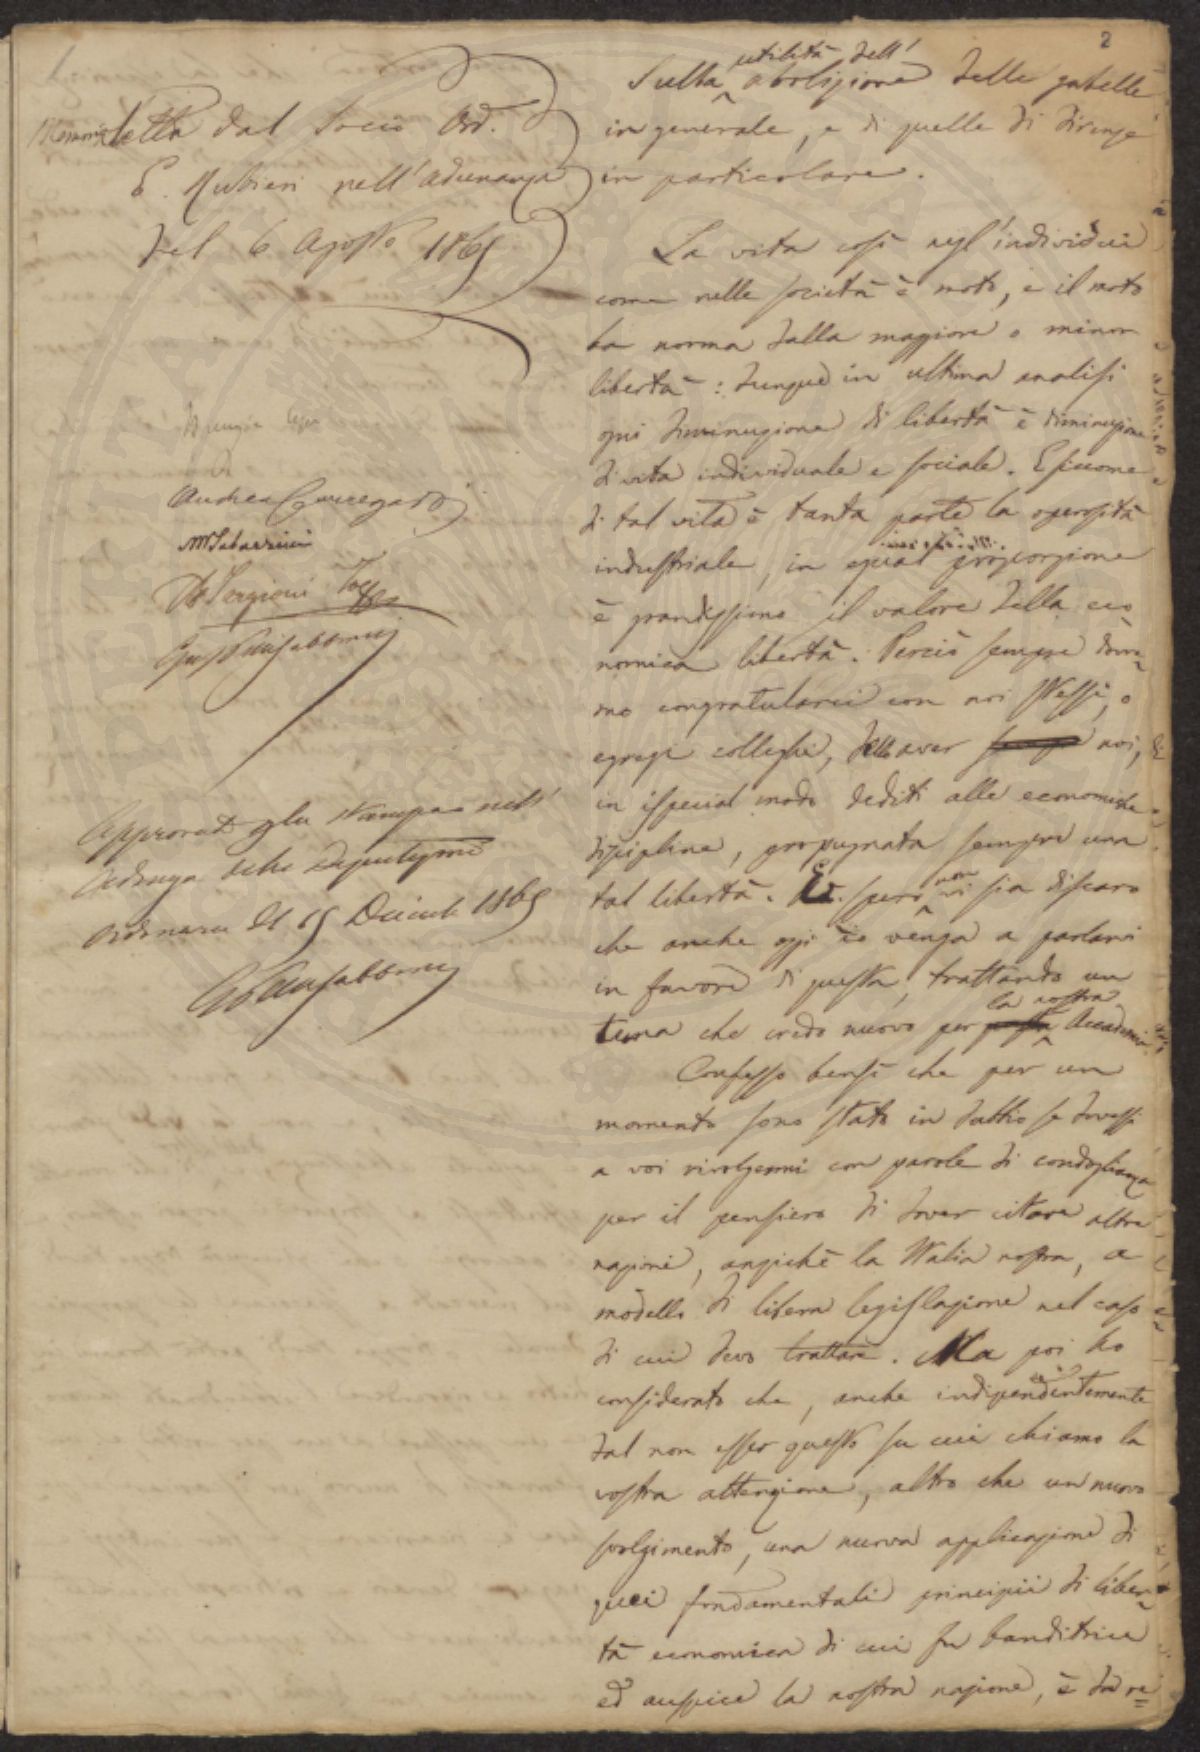 2
Memoria letta dal Socio Ord.
E. Rubieri nell'adunanza
del 6 Agosto 1865
Andrea
M Tabarrini
Approvata la stampa nell'
Adunza della Deputazione
ordinaria del 15 Dicembe 1865
Sulla utilità dell' abolizione delle gabelle
in generale, e di quelle di Firenze
in particolare.
La vita così negl'individui
come nelle società è moto, e il moto
ha norma dalla maggiore o minor
libertà: dunque in ultima analisi
ogni diminuzione di libertà è diminuzione
di vita individuale e sociale. E siccome
di tal vita è tanta parte la operosità
industriale, in egual proporzione
è grandissimo il valore della eco
nomica libertà. Perciò sempre dovre=
mo congratularci con noi stessi, o
egregi colleghi, dell'aver noi,
in ispecial modo dediti alle economiche
discipline, propugnata sempre una
tal libertà. E spero non vi sia discaro
che anche oggi io venga a parlarvi
in favore di questa, trattando un
tema che credo nuovo per la nostra Accademia.
Confesso bensì che per un
momento sono stato in dubbio se dovessi
a voi rivolgermi con parole di condoglianza
per il pensiero di dover citare altre
nazioni, anzichè la Italia nostra, a
modello di libera legislazione nel caso
di cui devo trattare. Ma poi ho
considerato che, anche indipendentemente
dal non esser questo su cui chiamo la
vostra attenzione, altro che un nuovo
svolgimento, una nuova applicazione di
quei fondamentali principii di liber=
tà economica di cui fu banditrice
ed auspice la nostra nazione, è da re=